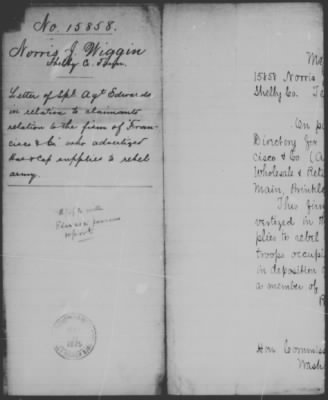 No. 15858.
Norris J. Wiggin
Shelby C. Tenn.
Letter of Spl. Agt. Edwards
in relation to claimants
relation to the firm of Fran-
cisco & Co who advertized
supplies to rebel
army.
report
15858 Norris
Shelby Co. Te
On pa
Directory for
cisco & Co. (A
Wholesale & Reta
Main, Brinkle
This firm
vertized in th
plies to rebel
troops occupi
in deposition
a member of
Hon. Commiss
Wash